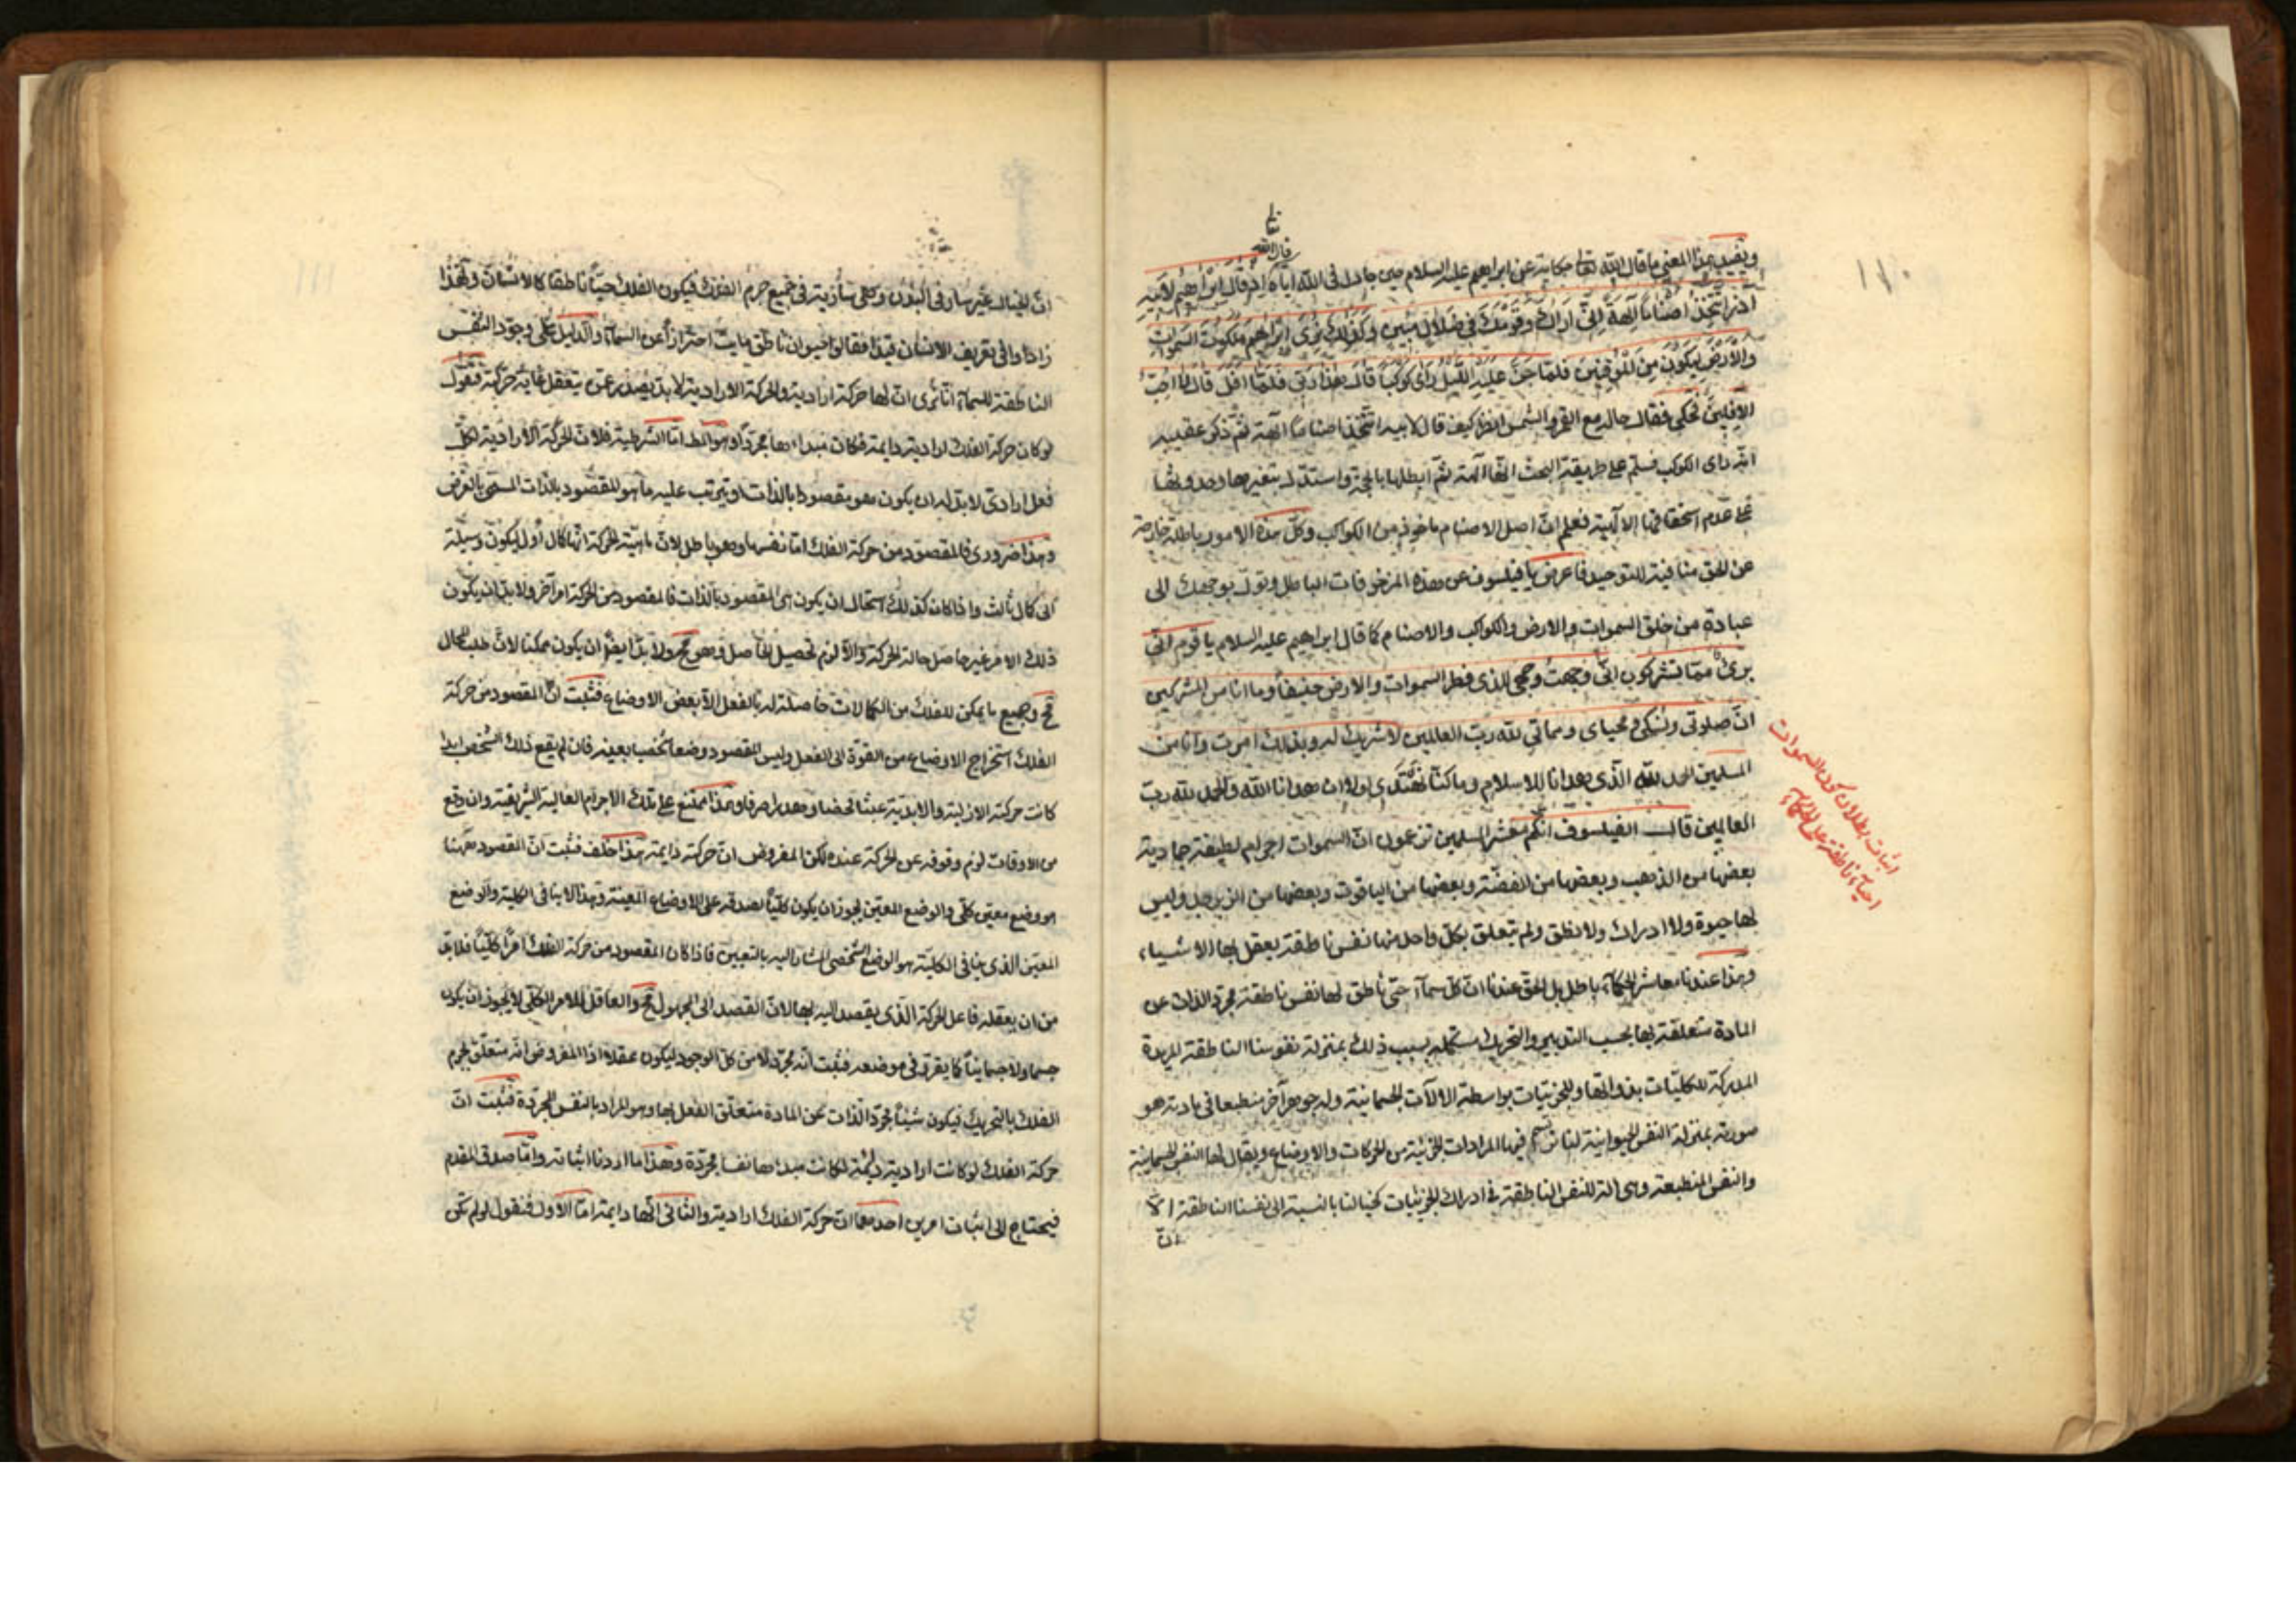 ١١٠
قال الله تعا
ويفيد هذا المعنى ما قال الله تعا حكاية عن ابراهيم عليه السلام حين جادل في الله اياه اذ قال ابراهيم لابيه
آذر اتتخذ اصناما آلهة انى اراك وقومك في ضلال مبين وكذلك نرى ابراهيم ملكوت السموات
والارض ليكون من الموقنين فلما جن عليه الليل راى كوكبا قال هذا ربى فلما افل قال لا احب
الافلين فحكى فقال حاله مع القمر والشمس انظر كيف قال لابيه اتتخذ اصناما آلهة ثم ذكر عقيبه
انه راى الكوكب فسلم على طريقة البحث انها آلهة ثم ابطلها بالحجة واستدل بتغيرها وحدوثها
على عدم استحقاقها الالهية فعلم ان اصل الاصنام ماخوذ من الكواكب وكل هذه الامور باطلة خارجة
عن الحق منافية للتوحيد فاعرض يا فيلسوف عن هذه المزخرفات الباطل وتول بوجهك الى
عبادة من خلق السموات والارض والكواكب والاصنام كما قال ابراهيم عليه السلام يا قوم انى
برئ مما تشركون انى وجهت وجهى للذى فطر السموات والارض حنيفا وما انا من المشركين
ان صلوتى ونسكى ومحياى ومماتي لله رب العالمين لا شريك له وبذلك امرت وانا من
المسلمين الحمد لله الذى هدانا للاسلام وما كنا لنهتدى لولا ان هدانا الله والحمد لله رب
العالمين قال الفيلسوف انكم معشر المسلمين تزعمون ان السموات اجرام لطيفة جمادية
بعضها من الذهب وبعضها من الفضة وبعضها من الياقوت وبعضها من الزبرجد وليس
لها حيوة ولا ادراك ولا نطق ولم يتعلق بكل واحد منها نفس ناطقة يعقل بها الاشياء
وهذا عندنا معاشر الحكماء باطل بل الحق عندنا ان كل سماء حى ناطق لها نفس ناطقة مجرد الذات عن
المادة متعلقة بها بحسب التدبير والتحريك مستكملة بسبب ذلك بمنزلة نفوسنا الناطقة المريدة
المدركة للكليات بذواتها وللجزئيات بواسطة الالآت الجسمانية وله جوهر آخر منطبعا في مادته هو
صورته بمنزلة النفس الحيوانية لنا ترتسم فيها المرادات الجزئية من الحركات والاوضاع ويقال لها النفس الجسمانية
والنفس المنطبعة وهى آلة للنفس الناطقة في ادراك الجزئيات كخيالنا بالنسبة الى نفسنا الناطقة الا
ان
اثبات بطلان كون السموات
احياء ناطقة على الحكماء
١١١
ان الخيال غير سار فى البدن وهى سارية في جميع جرم الفلك فيكون الفلك حيا ناطقا كالانسان ولهذا
زادوا فى تعريف الانسان قيدا فقالوا حيوان ناطق مايت احترازا عن السماء والدليل على وجود النفس
الناطقة للسماء انا نرى ان لها حركة ارادية والحركة الارادية لا بد يصدر عن يتعقل غاية حركة فنقول
لو كان حركة الفلك ارادية دايمة فكان مبداءها مجردا وهو المط اما الشرطية فلان الحركة الارادية لكل
فعل ارادى لا بد له ان يكون هو مقصودا بالذات او يترتب عليه ما هو المقصود بالذات المسمى بالغرض
وهذا ضرورى فالمقصود من حركة الفلك اما نفسها وهو باطل لان ماهية الحركة انها كال اول ليكون وسيلة
الى كال ثالث واذا كان كذلك استحال ان يكون هى المقصود بالذات فالمقصود من الحركة امر آخر ولا بد ان يكون
ذلك الامر غير حاصل حالة الحركة والا لزم تحصيل الحاصل وهو مح ولا بد ايضا ان يكون ممكنا لان طلب المحال
مح وجميع ما يمكن للفلك من الكمالات حاصلة له بالفعل الا بعض الاوضاع فثبت ان المقصود من حركة
الفلك استخراج الاوضاع من القوة الى الفعل وليس المقصود وضعا شخصيا بعينه فان لم يقع ذلك الشخص ابدا
كانت حركته الازلية والابدية عبثا محضا وهدرا صرفا وهذا ممتنع على تلك الاجرام العالية الشريفة وان وقع
من الاوقات لزم وقوفه عن الحركة عنده لكن المفروض ان حركته دايمة هذا خلف فثبت ان المقصود ههنا
هو وضع معين كلى والوضع المعين يجوز ان يكون كليا لصدقه على الاوضاع المعينة وهذا لا ينافى الكلية والوضع
المعين الذى ينافى الكلية هو الوضع الشخصى المشار اليه بالتعيين فاذا كان المقصود من حركة الفلك امرا كليا فلا بد
من ان يعقله فاعل الحركة الذى يقصد اليه بها لان القصد الى المجهول مح والعاقل للامر الكلى لا يجوز ان يكون
جسما ولا جسمانيا كما يقرر في موضعه فثبت انه مجرد لا من كل الوجود ليكون عقلا اذ المفروض انه متعلق بجرم
الفلك بالتحريك فيكون شيئا مجرد الذات عن المادة متعلق الفعل بها وهو المراد بالنفس المجردة فثبت ان
حركة الفلك لو كانت ارادية دايمة لكانت مبدءها نفسا مجردة وهذا ما اردنا اثباته واما صدق المقدم
فيحتاج الى اثبات امرين احدهما ان حركة الفلك ارادية والثانى انها دايمة اما الاول فنقول لو لم تكن